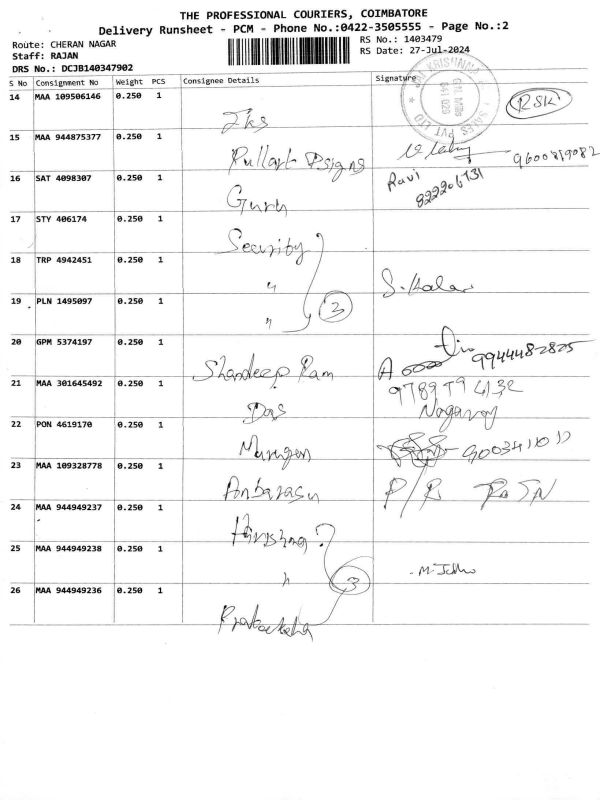 THE PROFESSIONAL COURIERS, COIMBATORE
Delivery Runsheet - PCM - Phone No.:0422-3505555 - Page No.:2
Route: CHERAN NAGAR
RS No.: 1403479
Staff: RAJAN
RS Date: 27-Jul-2024
DRS No.: DCJB140347902
S No Consignment No Weight PCS Consignee Details Signature
14 MAA 109506146 0.250 1
RSK
15 MAA 944875377 0.250 1
9600819082
16 SAT 4098307 0.250 1 Guru
Ravi
17 STY 406174 0.250 1 Security
18 TRP 4942451 0.250 1 "
19 PLN 1495097 0.250 1 " 3
20 GPM 5374197 0.250 1 Shandeep Ram
9944482825
21 MAA 301645492 0.250 1 Das
22 PON 4619170 0.250 1 Murugan
23 MAA 109328778 0.250 1 Anbarasu P/R
24 MAA 944949237 0.250 1
25 MAA 944949238 0.250 1 " 3
26 MAA 944949236 0.250 1